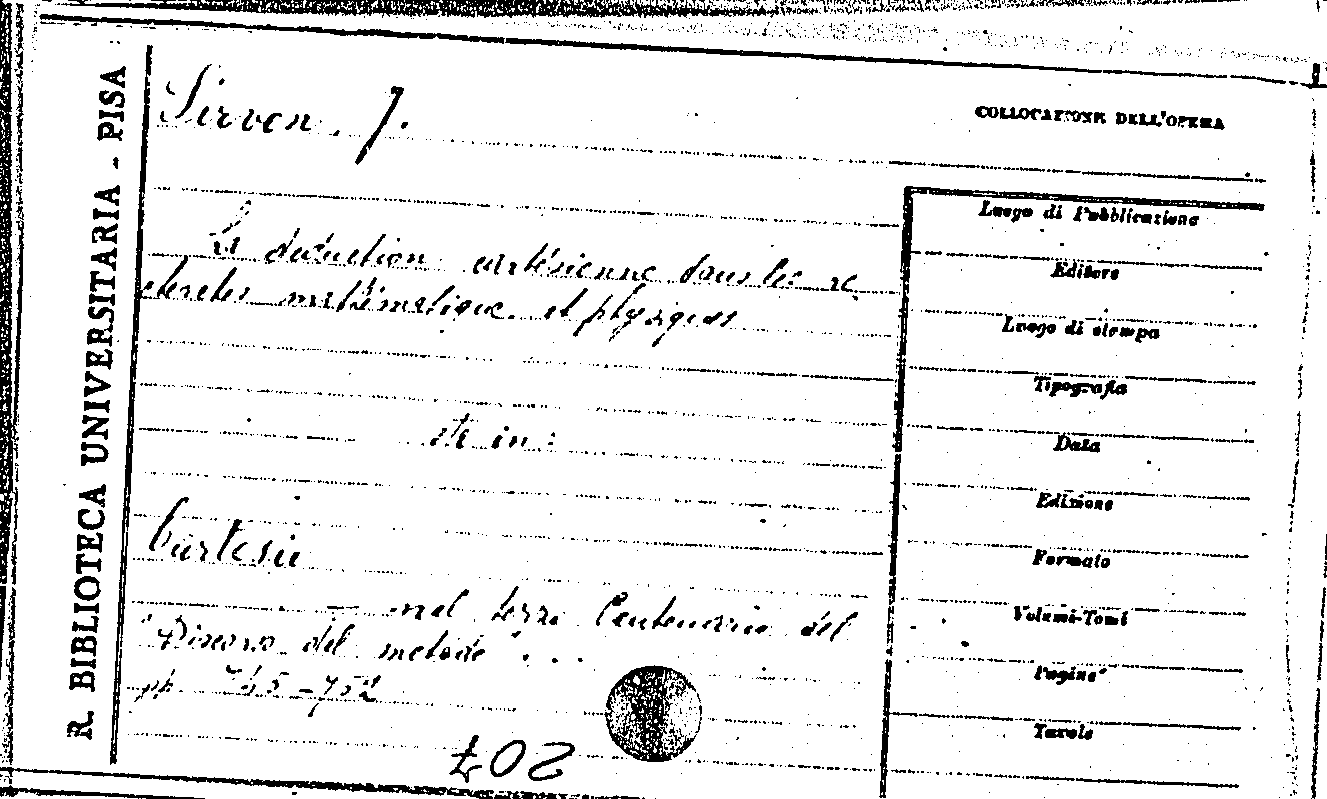 R. BIBLIOTECA UNIVERSITARIA - PISA
Sirven. J.
COLLOCAZIONE DELL'OPERA
La déduction cartésienne dans les re
cherches mathématique et physiques
sta in:
Cartesio
— nel terzo Centenario del
"Discorso del metodo" . . .
pp. 745-752
207
Luogo di Pubblicazione
Editore
Luogo di stampa
Tipografia
Data
Edizione
Formato
Volumi-Tomi
Pagine
Tavole